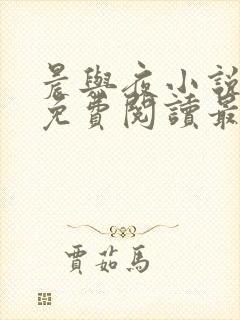 晨與夜小說
免費閱讀最
賈茹馬